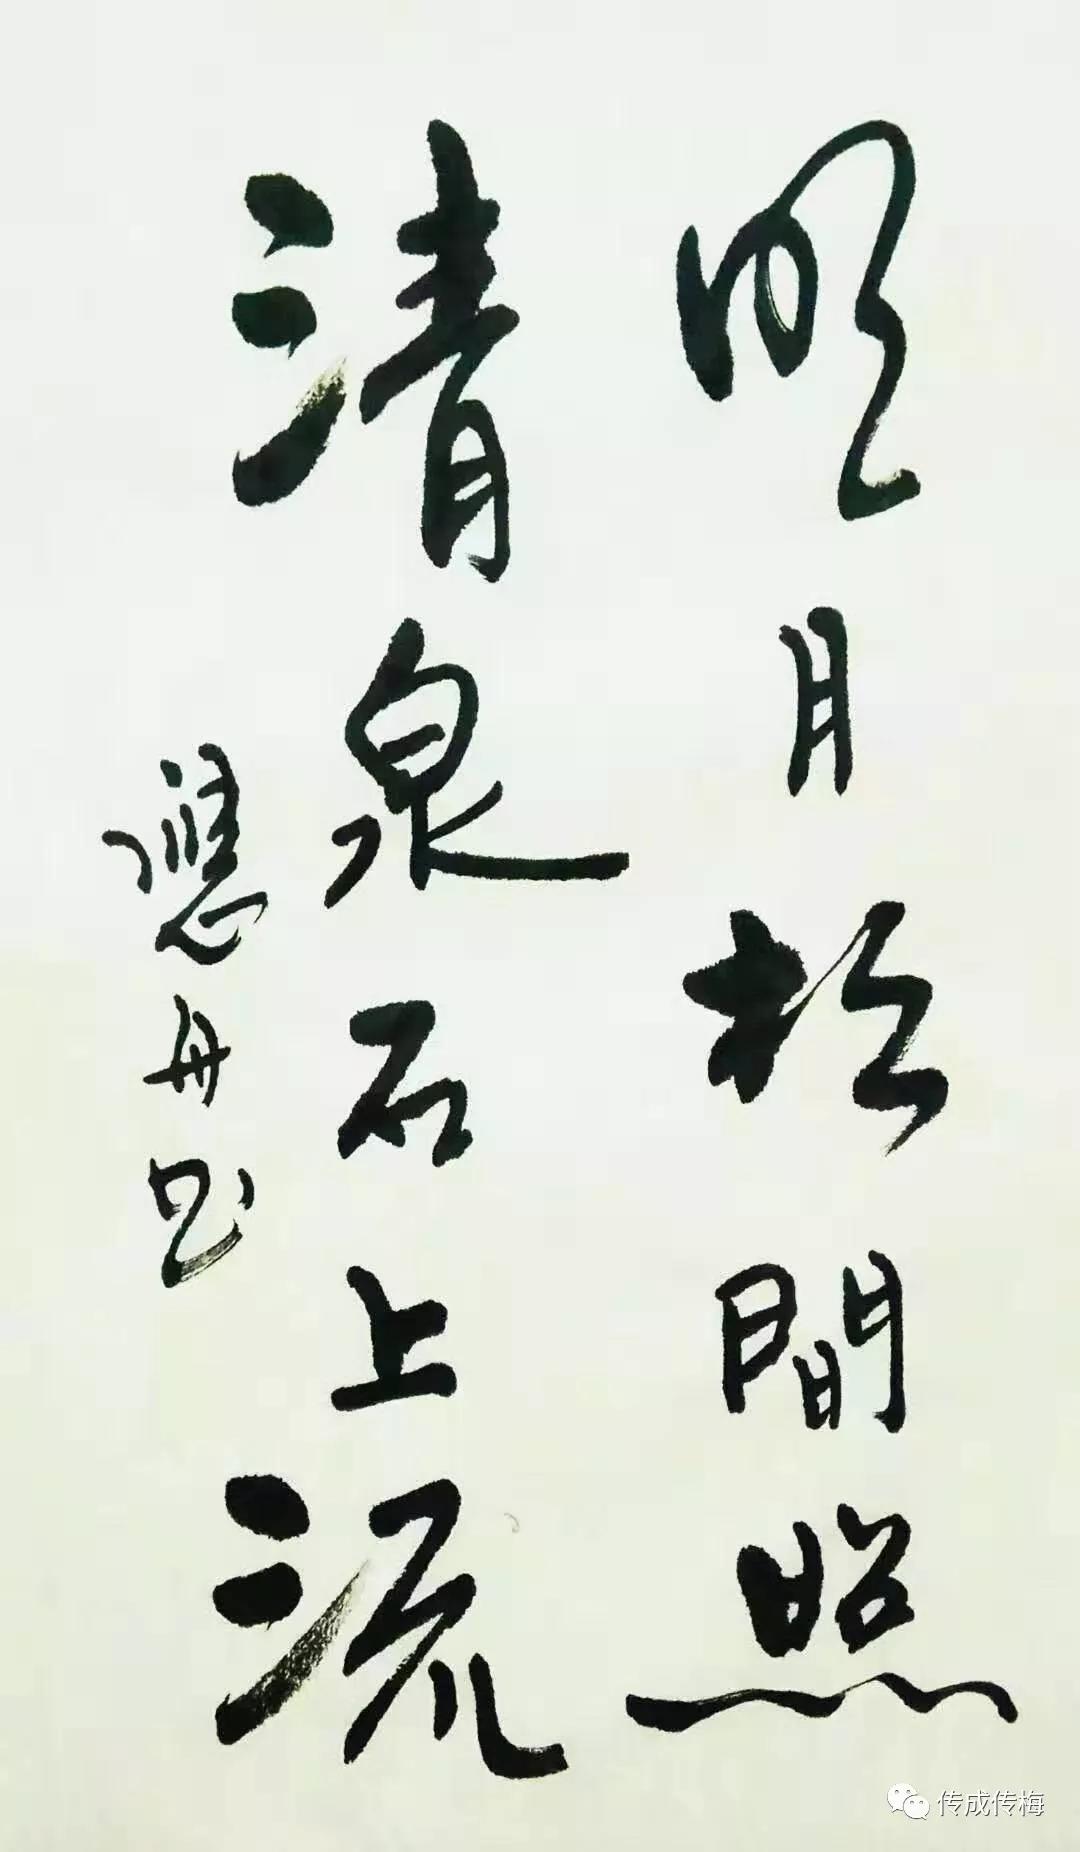 明月松間照
清泉石上流
應丹书
传成传梅